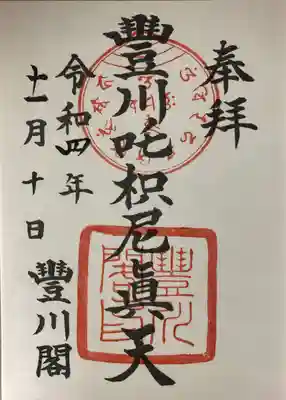 奉拝
豐川吒枳尼眞天
令和四年
十一月十日
豐川閣
豐川閣印